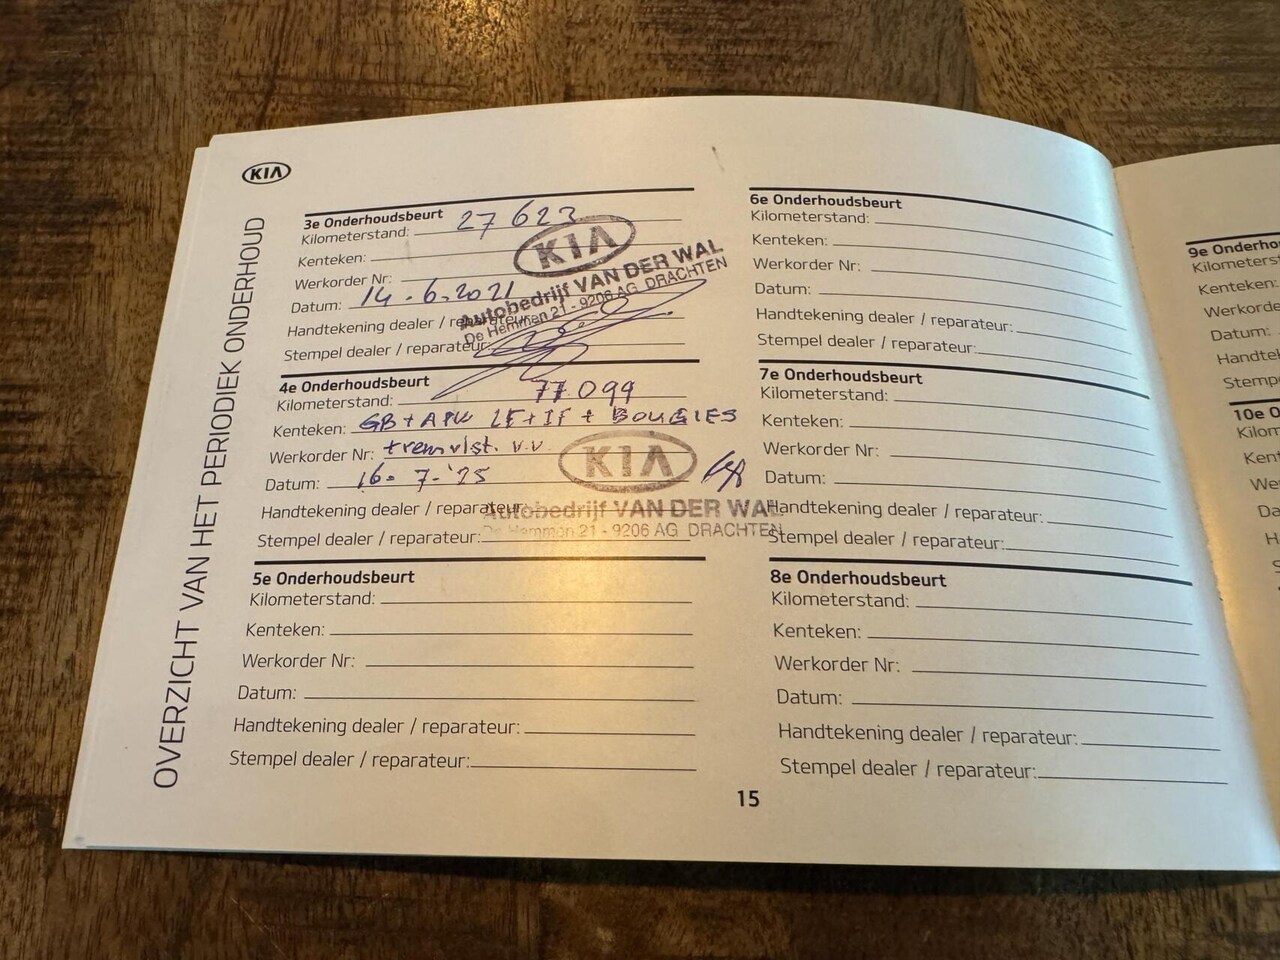 KIA
OVERZICHT VAN HET PERIODIEK ONDERHOUD
3e Onderhoudsbeurt
Kilometerstand: 27 623
Kenteken:
Werkorder Nr:
Datum: 14-6-2021
Handtekening dealer / reparateur:
Stempel dealer / reparateur:
KIA
Autobedrijf VAN DER WAL
De Hemmen 21 - 9206 AG DRACHTEN
4e Onderhoudsbeurt
Kilometerstand: 77.099
Kenteken: GB + APK LF + IF + BOUGIES
Werkorder Nr: remvlst. v.v
Datum: 16-7-'25
Handtekening dealer / reparateur:
Stempel dealer / reparateur:
KIA
Autobedrijf VAN DER WAL
De Hemmen 21 - 9206 AG DRACHTEN
5e Onderhoudsbeurt
Kilometerstand:
Kenteken:
Werkorder Nr:
Datum:
Handtekening dealer / reparateur:
Stempel dealer / reparateur:
6e Onderhoudsbeurt
Kilometerstand:
Kenteken:
Werkorder Nr:
Datum:
Handtekening dealer / reparateur:
Stempel dealer / reparateur:
7e Onderhoudsbeurt
Kilometerstand:
Kenteken:
Werkorder Nr:
Datum:
Handtekening dealer / reparateur:
Stempel dealer / reparateur:
8e Onderhoudsbeurt
Kilometerstand:
Kenteken:
Werkorder Nr:
Datum:
Handtekening dealer / reparateur:
Stempel dealer / reparateur:
15
9e Onderho
Kilometers
Kenteken:
Werkorde
Datum:
Handtek
Stemp
10e O
Kilom
Kent
We
Da
H
S